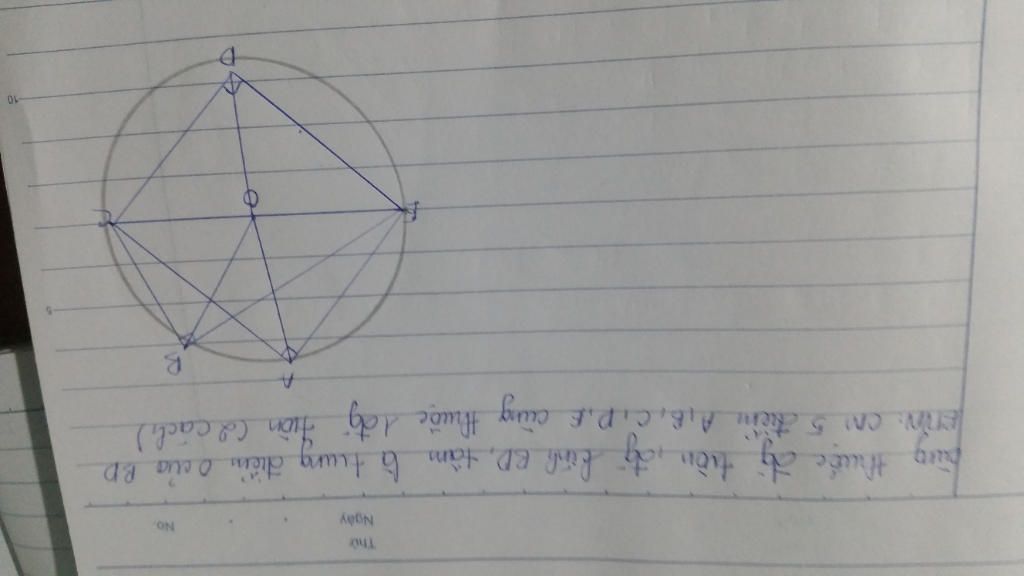 Thứ
Ngày No
cùng thuộc đg tròn, đg kính BD, tâm là trung điểm O của BD
BTVN: CM 5 điểm A, B, C, D, E cùng thuộc 1 đg tròn (2 cách)
A
B
5
E
O
C
10
D